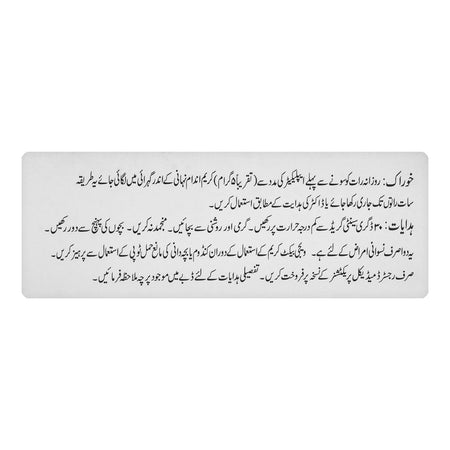 خوراک: روزانہ رات کو سونے سے پہلے ایپلیکیٹر کی مدد سے (تقریباً ۵ گرام) کریم اندام نہانی کے اندر گہرائی میں لگائی جائے یہ طریقہ
سات راتوں تک جاری رکھا جائے یا ڈاکٹر کی ہدایت کے مطابق استعمال کریں۔
ہدایات: ۳۰ ڈگری سینٹی گریڈ سے کم درجہ حرارت پر رکھیں۔ گرمی اور روشنی سے بچائیں۔ منجمد نہ کریں۔ بچوں کی پہنچ سے دور رکھیں۔
یہ دوا صرف نسوانی امراض کے لئے ہے۔ ویجی بیکٹ کریم کے استعمال کے دوران کنڈوم یا بچہ دانی کی مانع حمل ٹوپی کے استعمال سے پرہیز کریں۔
صرف رجسٹرڈ میڈیکل پریکٹشنر کے نسخہ پر فروخت کریں۔ تفصیلی ہدایات کے لئے ڈبے میں موجود پرچہ ملاحظہ فرمائیں۔